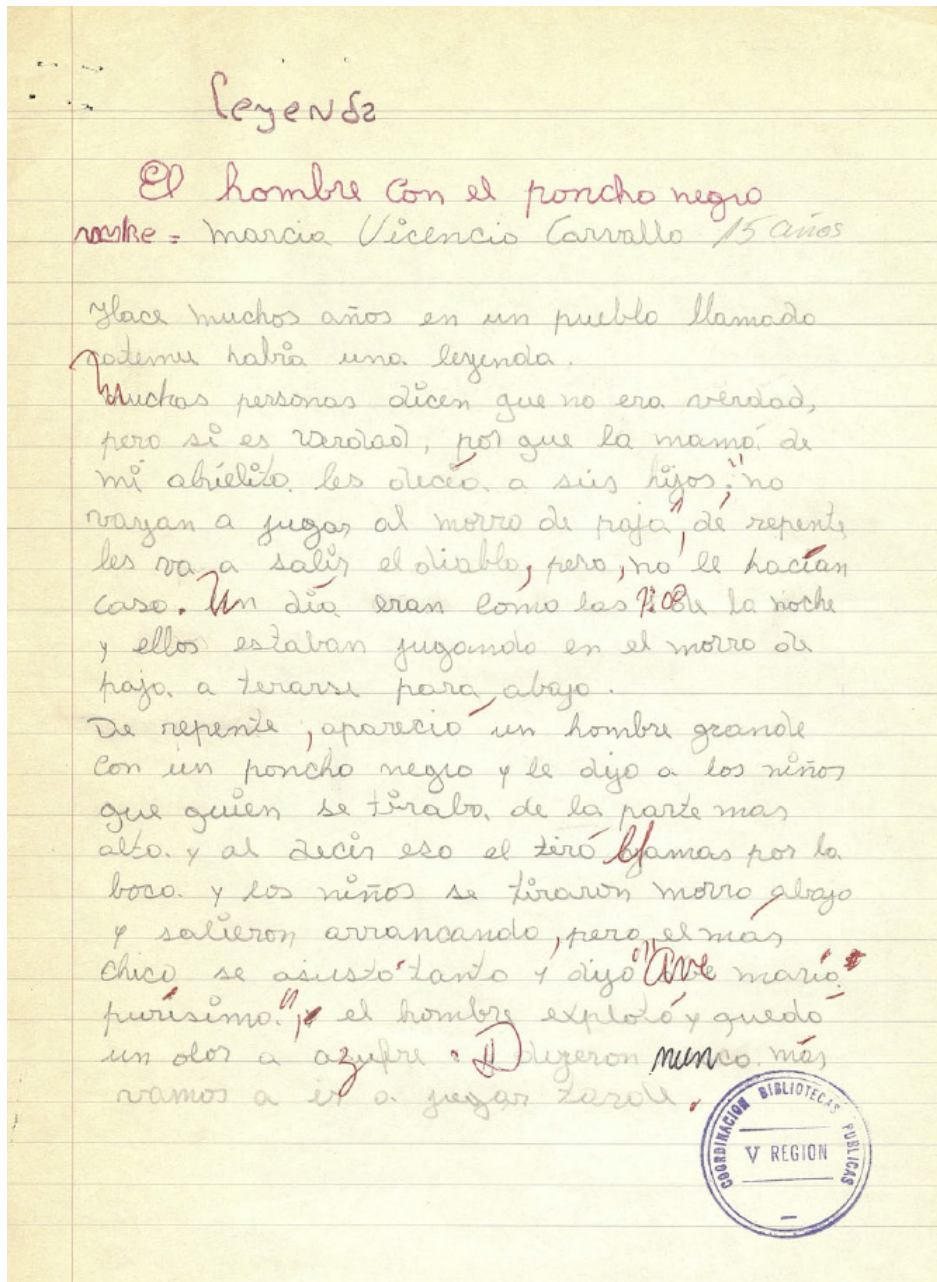 Leyenda
El hombre con el poncho negro
nombre = Marcia Vicencio Carvallo 15 años
Hace muchos años en un pueblo llamado
catemu había una leyenda.
Muchas personas dicen que no era verdad,
pero si es verdad, por que la mamá de
mi abuelito les decía a sus hijos: "no
vayan a jugar al morro de paja", de repente
les va a salir el diablo, pero, no le hacían
caso. Un día eran como las de la noche
y ellos estaban jugando en el morro de
paja a terarse para abajo.
De repente, apareció un hombre grande
con un poncho negro y le dijo a los niños
que quien se tiraba de la parte mas
alta y al decir eso el tiró llamas por la
boca y los niños se tiraron morro abajo
y salieron arrancando, pero el más
chico se asustó tanto y dijo "Ave maria
purísima", el hombre explotó y quedó
un olor a azufre. Dijeron nunca más
vamos a ir a jugar tarde.
COORDINACION BIBLIOTECAS PUBLICAS
V REGION